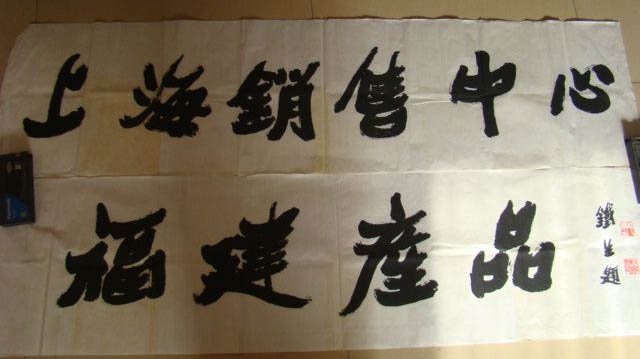 上海銷售中心
福建產品